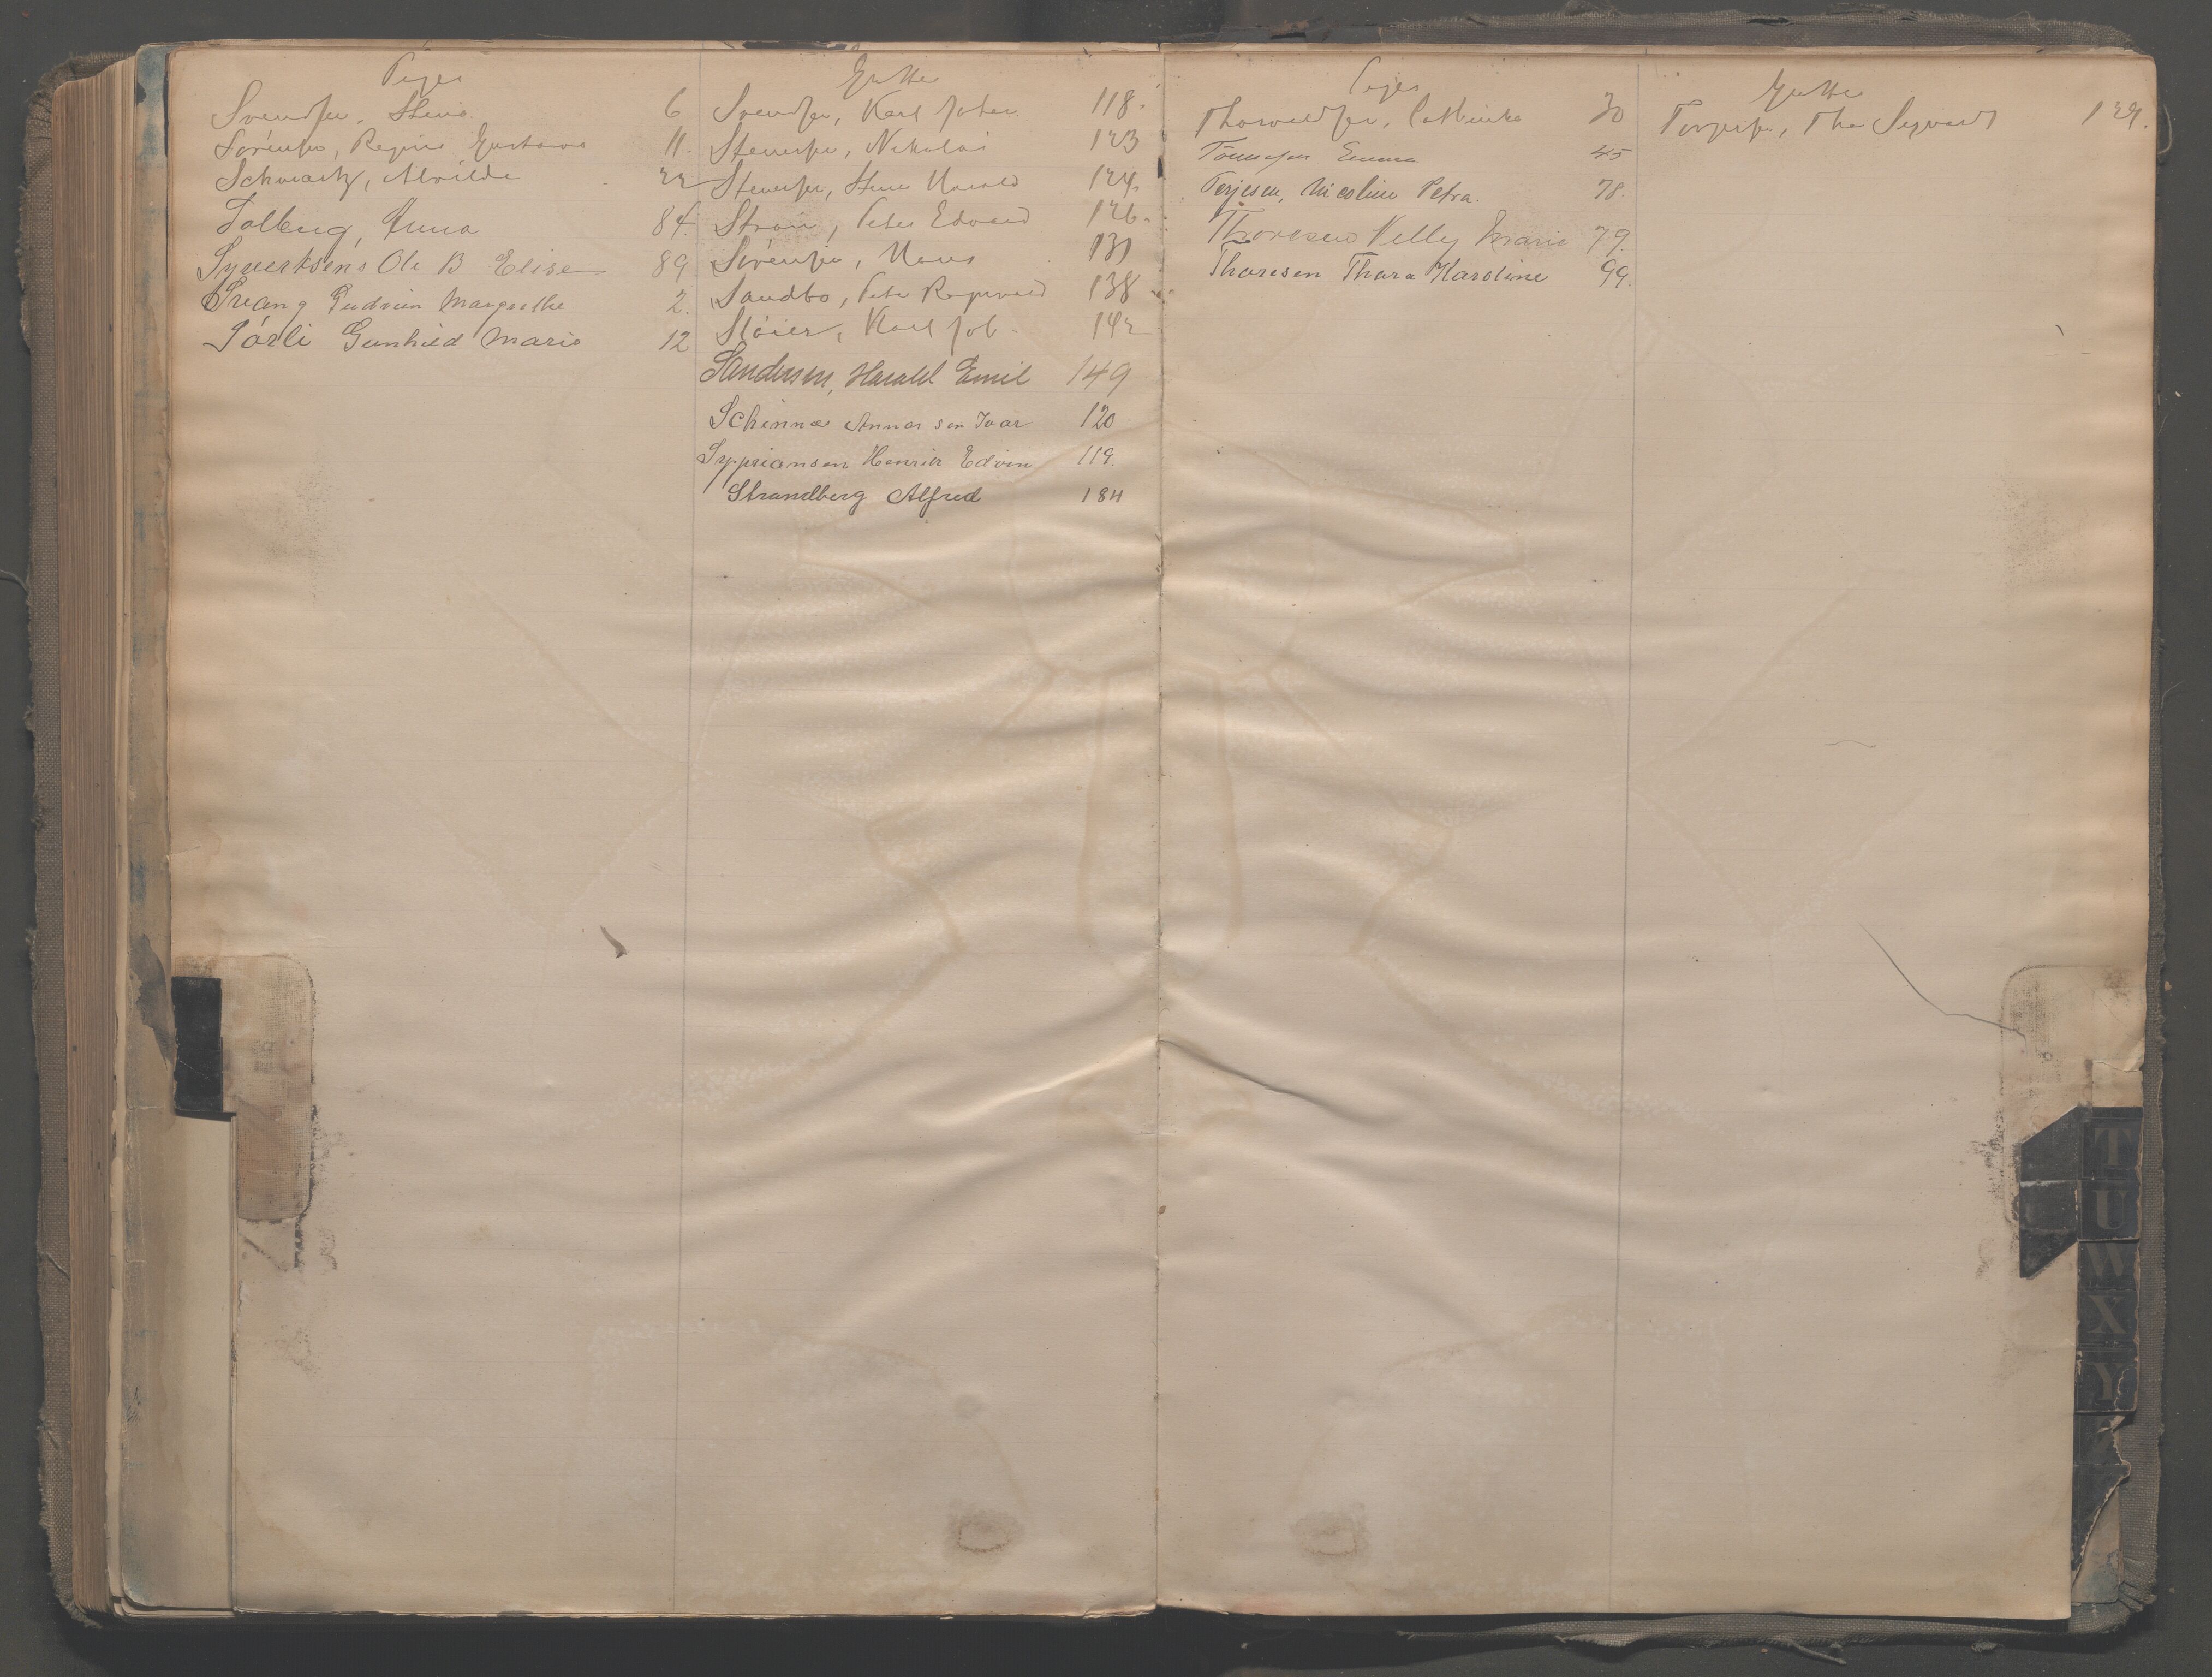 Piger
Svendsen, Stina 6
Sörensen, Regine Gustava 11.
Schwartz, Alvilde 22
Solberg, Anna 84.
Syvertsens Ole B Elise 89
Svang Gudrun Margrethe 2.
Sörli Gunhild Marie 12
Gutter
Svendsen, Karl Johan 118.
Stenersen, Nikolai 123
Stenersen, Harald 124.
Peter Edvard 126.
Sörensen, Hans 131
Sandbo, Peter Ragnvald 138
Slöier, Karl Joh. 142
Sandersen, Harald Emil 149
Schinnæ Annar sen Ivar 120
Syppriansen Henrik Edvin 119.
Strandberg Alfred 184
Piger
Thorvaldsen, Cathinka 30
Tönnesen Emma 45
Terjesen, Nicoline Petra. 78.
Thoresen Nelly Marie 79.
Thoresen Thora Karoline 99.
Gutter
Torgersen, Sigvard 129.
T
U
W
X
Y
Z